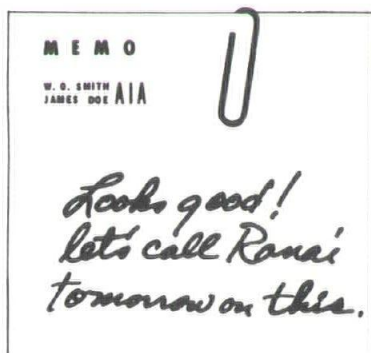 MEMO
W. O. SMITH
JAMES DOE AIA
Looks good!
let's call Ranai
tomorrow on this.